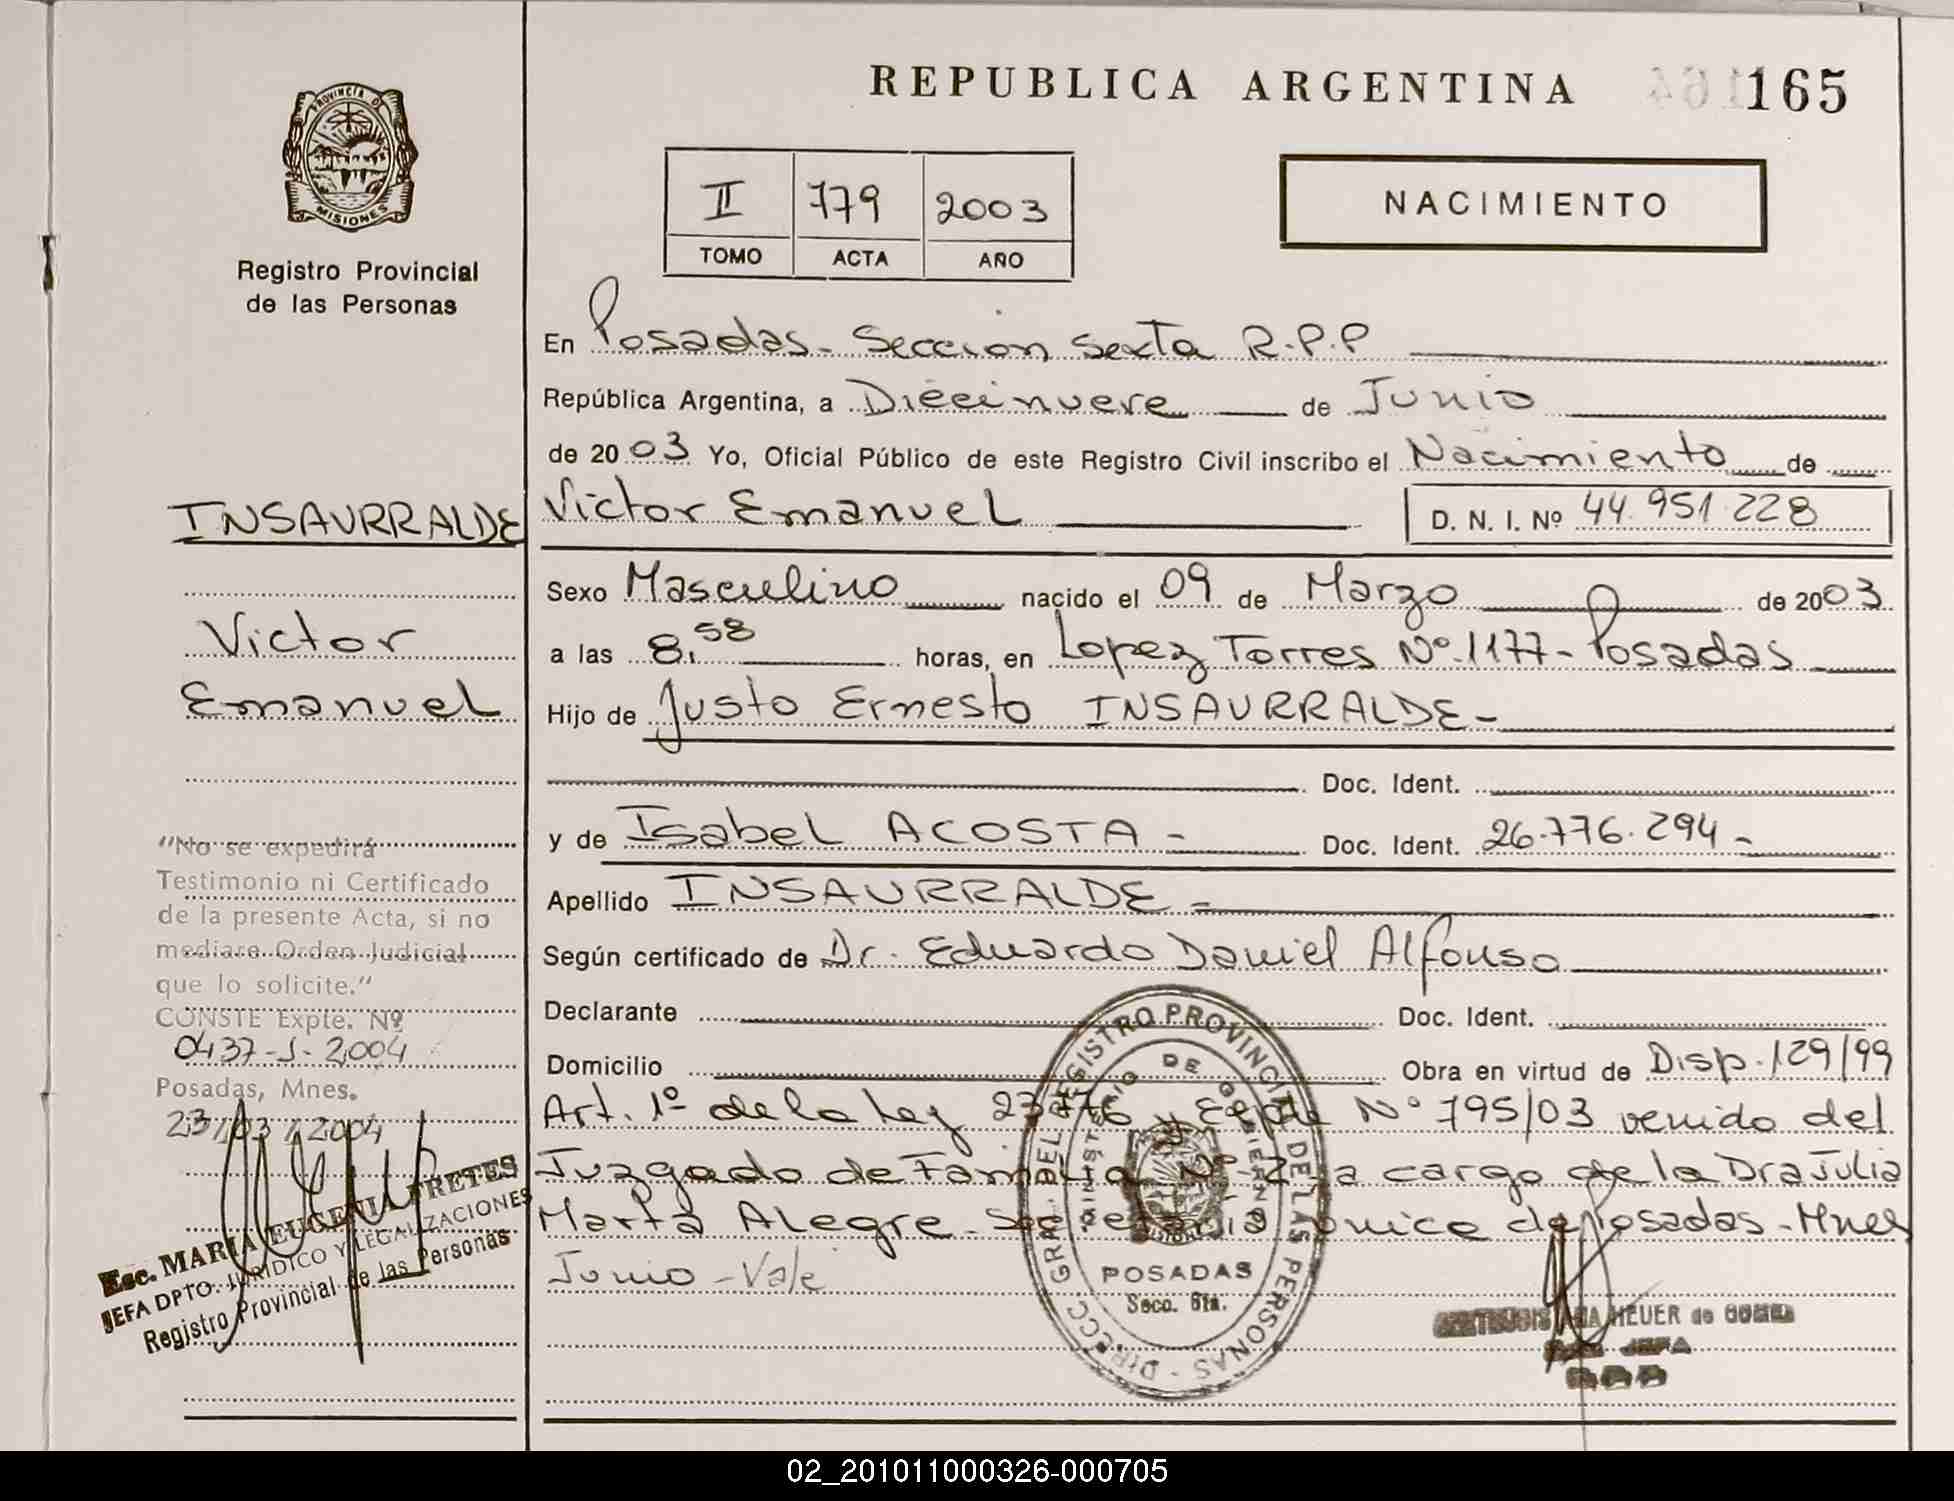 REPUBLICA ARGENTINA 165
PROVINCIA DE
MISIONES
Registro Provincial
de las Personas
II 779 2003
TOMO ACTA AÑO
NACIMIENTO
En Posadas - Seccion Sexta R.P.P
República Argentina, a Diecinueve de Junio
de 2003 Yo, Oficial Público de este Registro Civil inscribo el Nacimiento de
INSAURRALDE Victor Emanuel D. N. I. Nº 44.951.228
Sexo Masculino nacido el 09 de Marzo de 2003
Victor
a las 8,58 horas, en Lopez Torres Nº 1177 - Posadas
Emanuel
Hijo de Justo Ernesto INSAURRALDE -
Doc. Ident.
y de Isabel ACOSTA - Doc. Ident. 26.776.294 -
Apellido INSAURRALDE -
Según certificado de Dr. Eduardo Daniel Alfonso
Declarante Doc. Ident.
Domicilio Obra en virtud de Disp. 129/99
Art. 1º de la Ley 23776 y Expte Nº 795/03 venido del
Juzgado de Familia Nº 2 - a cargo de la Dra Julia
Marta Alegre - Secretaria Unica de Posadas - Mnes
Junio - Vale
"No se expedirá
Testimonio ni Certificado
de la presente Acta, si no
mediare Orden Judicial
que lo solicite."
CONSTE Expte. Nº
0437-J-2004
Posadas, Mnes.
23/03/2004
Esc. MARIA EUGENIA FRETES
JEFA DPTO. JURIDICO Y LEGALIZACIONES
Registro Provincial de las Personas
DIRECC. GRAL. DEL REGISTRO PROVINCIAL DE LAS PERSONAS
MINISTERIO DE GOBIERNO
POSADAS
Secc. 6ta.
MEUER de
JEFA
02_201011000326-000705